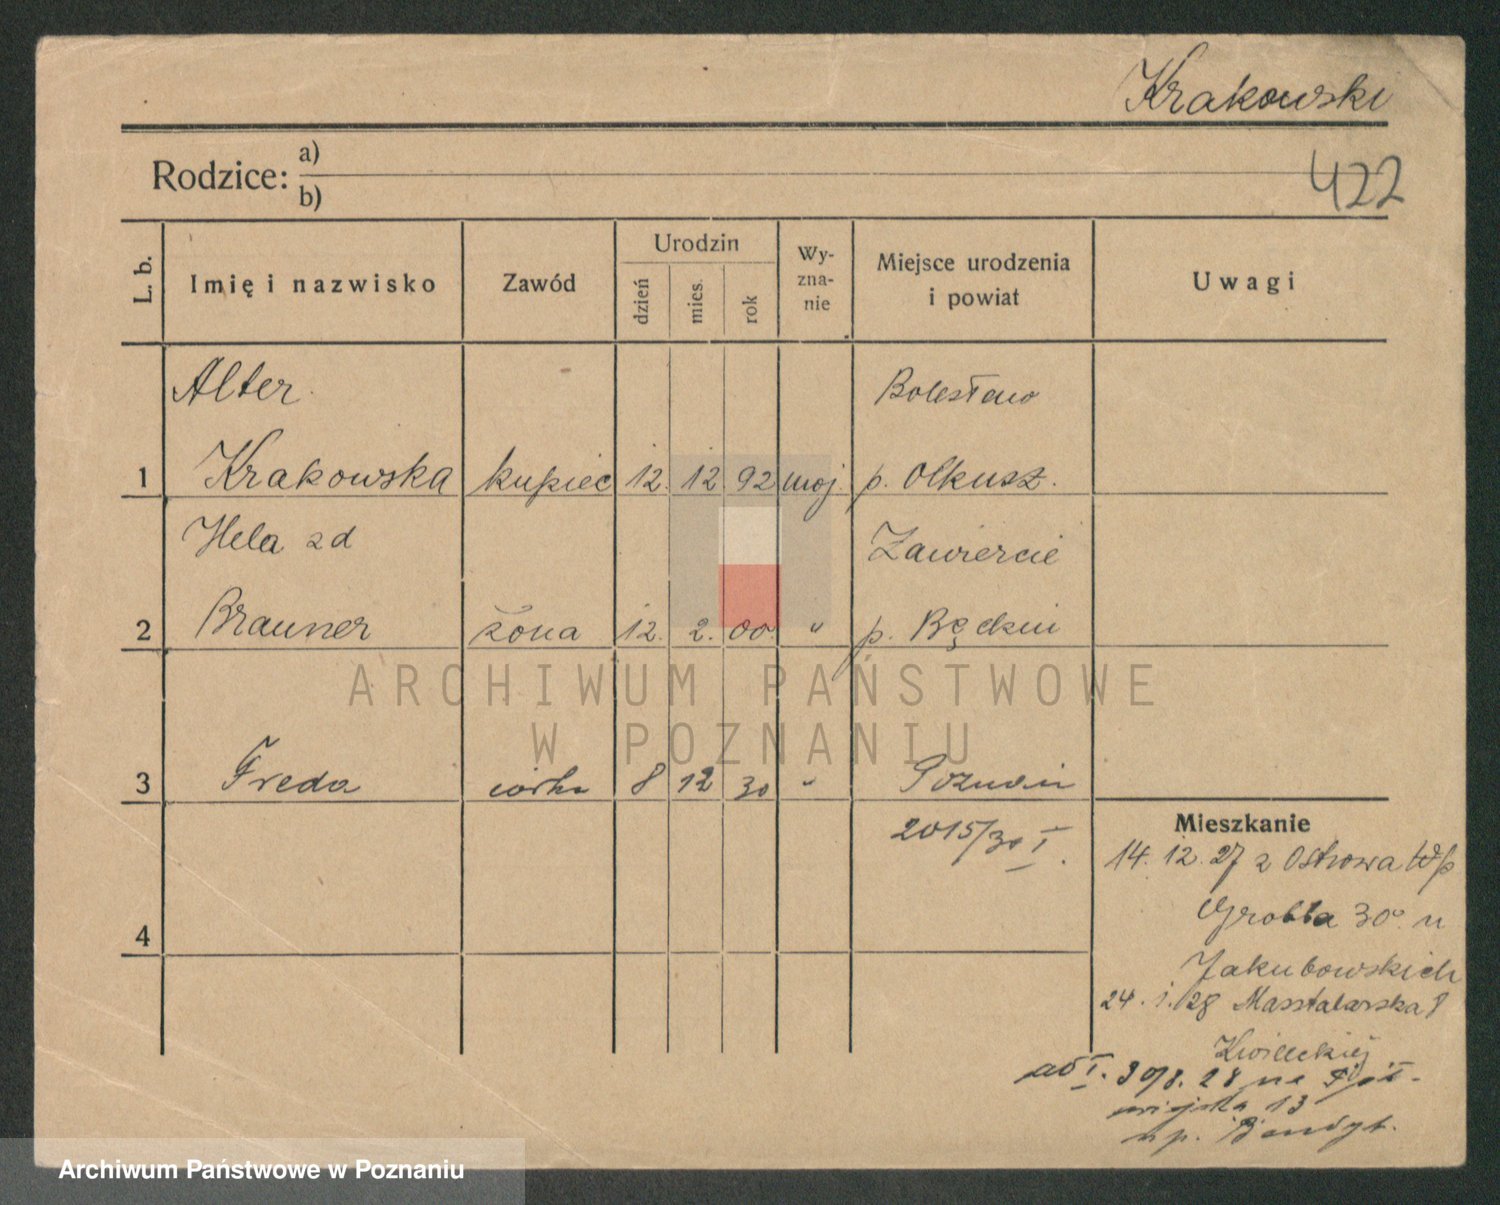 Krakowski
Rodzice: a)
b)
422
L. b.
Imię i nazwisko
Zawód
Urodzin
dzień
mies.
rok
Wy-
zna-
nie
Miejsce urodzenia
i powiat
Uwagi
Alter
Bolesław
1 Krakowska kupiec 12. 12 92 moj. p. Olkusz.
Hela zd
Zawiercie
2 Brauner żona 12. 2. 00. " p.
ARCHIWUM PAŃSTWOWE
W POZNANIU
3 Freda córka 8 12 30 " Poznań
2015/30 I.
Mieszkanie
14. 12. 27 z Ostrowa Wp
4
Grobla 30 u
Jakubowskich
24. 1. 28 Masztalarska 8
13
Archiwum Państwowe w Poznaniu